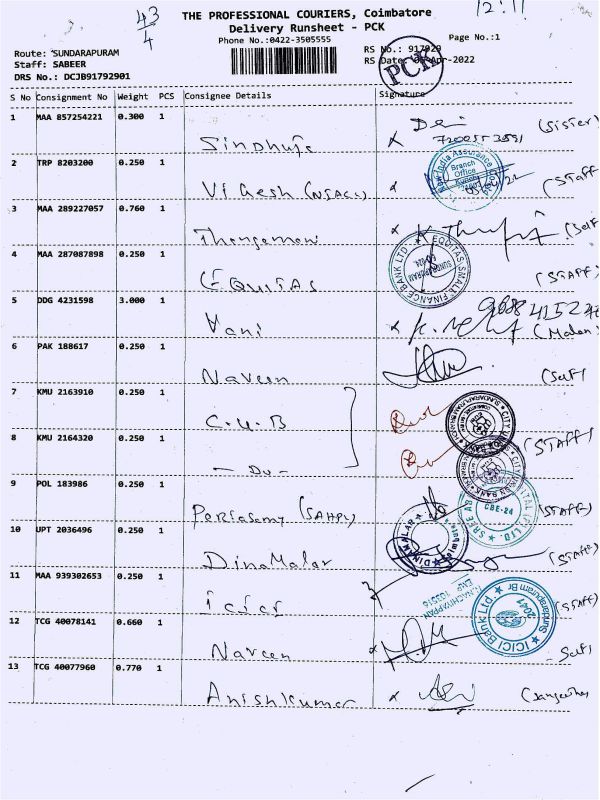 43
4
12:11
THE PROFESSIONAL COURIERS, Coimbatore
Delivery Runsheet - PCK
Phone No.:0422-3505555
Page No.:1
Route: SUNDARAPURAM
Staff: SABEER
DRS No.: DCJB91792901
RS No.: 917929
RS Date: Apr-2022
PCK
S No Consignment No Weight PCS Consignee Details Signature
1 MAA 857254221 0.300 1
Sindhuja (Sister)
2 TRP 8203200 0.250 1
Vignesh (NIACL) (Staff
New India Assurance
Branch Office
3 MAA 289227057 0.760 1
(Self
4 MAA 287087898 0.250 1
EQUITAS (STAFF)
EQUITAS SMALL FINANCE BANK LTD
SUNDARAPURAM
5 DDG 4231598 3.000 1
Vani
6 PAK 188617 0.250 1
Naveen (Self
7 KMU 2163910 0.250 1
C.U.B
CITY UNION BANK
8 KMU 2164320 0.250 1
- Do - (STAFF)
CITY UNION BANK
9 POL 183986 0.250 1
Periasamy (SAHPL) (STAFF)
CBE-24
10 UPT 2036496 0.250 1
DinaMalar (STAFF)
DINAMALAR
11 MAA 939302653 0.250 1
icici (STAFF)
ICICI Bank Ltd.
Sundarapuram Br
2041
12 TCG 40078141 0.660 1
Naveen Self
13 TCG 40077960 0.770 1
Anishkumar